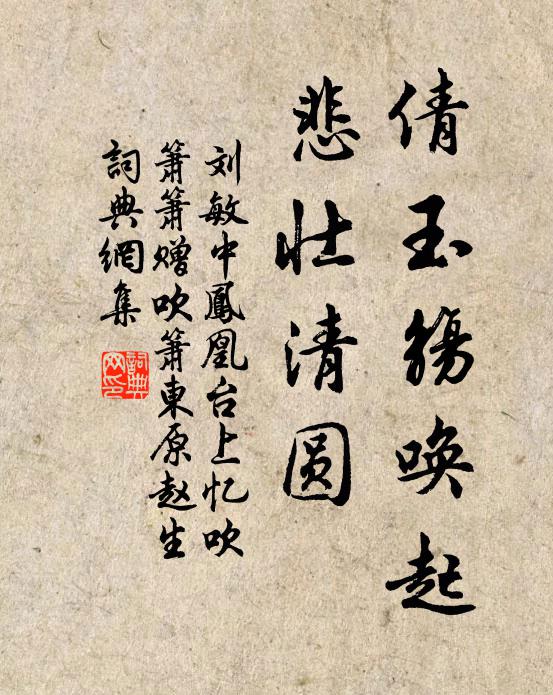 倩玉觴唤起
悲壮清圆
刘敏中鳳凰台上忆吹
箫箫赠吹箫東原赵生
詞典網集
詞典
网印